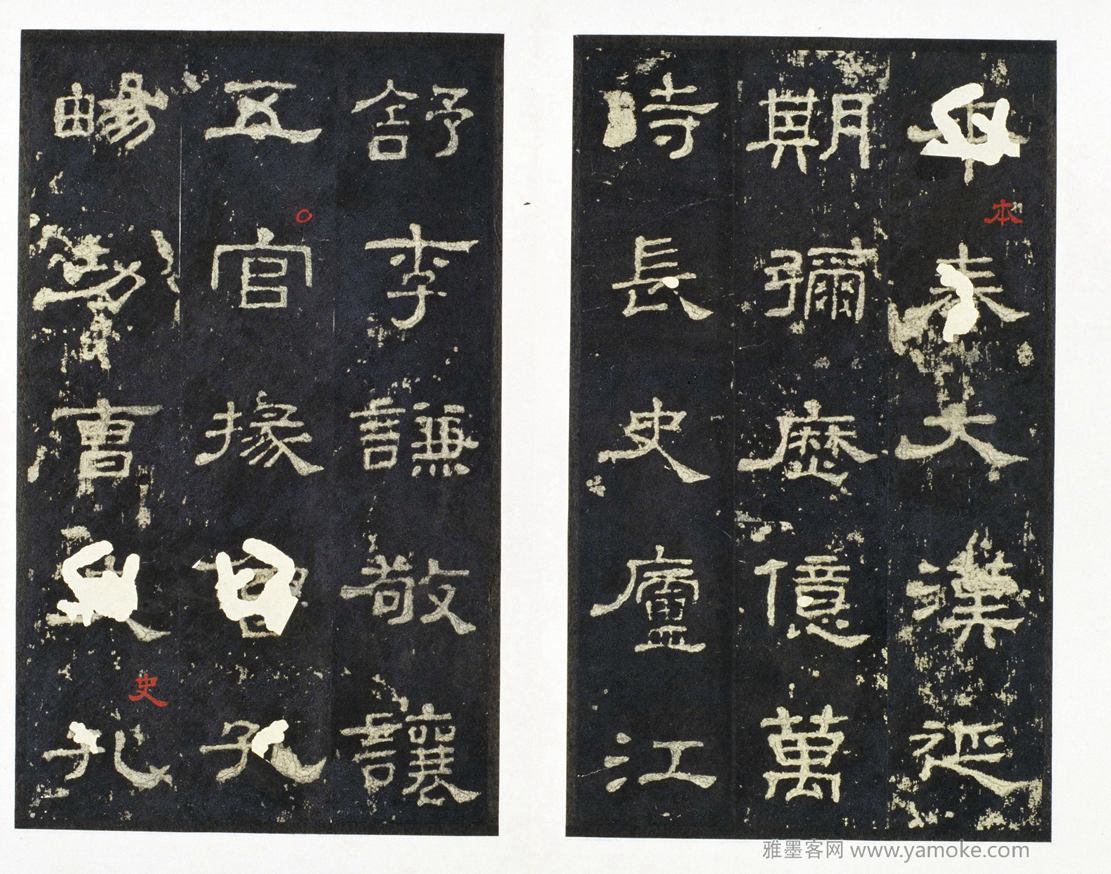 本奏大漢延
期彌歷億萬
時長史廬江
舒李謙敬讓
五官掾魯孔
暢功曹史孔
本
史
雅墨客网 www.yamoke.com